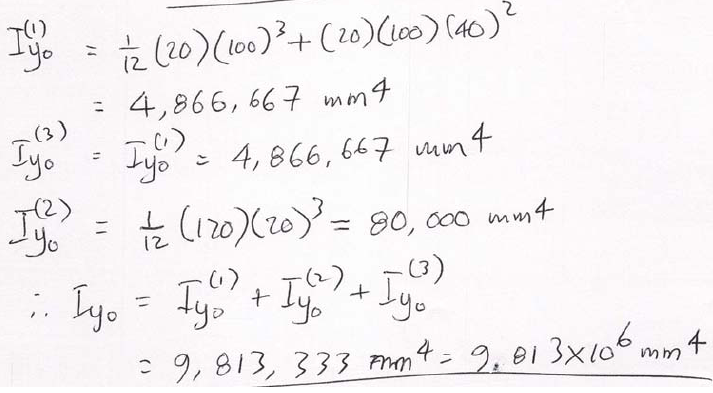 I_{y₀}^{(1)} = 1/12 (20)(100)³ + (20)(100)(40)²
= 4,866,667 mm⁴
I_{y₀}^{(3)} = I_{y₀}^{(1)} = 4,866,667 mm⁴
I_{y₀}^{(2)} = 1/12 (120)(20)³ = 80,000 mm⁴
∴ I_{y₀} = I_{y₀}^{(1)} + I_{y₀}^{(2)} + I_{y₀}^{(3)}
= 9,813,333 mm⁴ = 9.813×10⁶ mm⁴